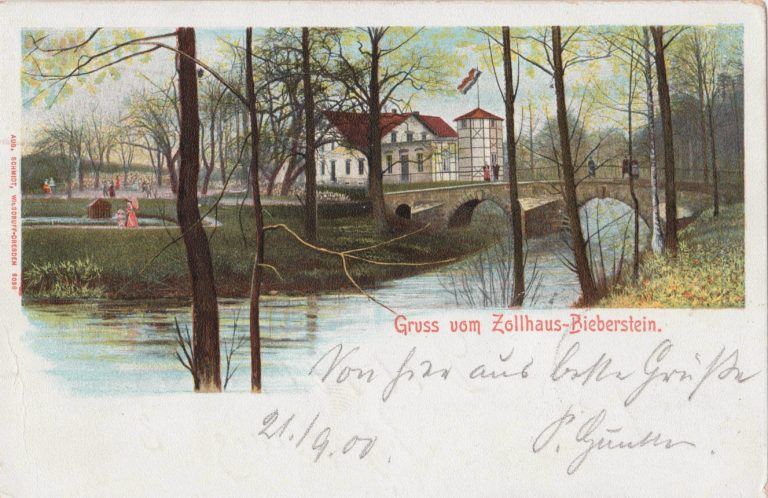 AUG. SCHMIDT, WILSDRUFF-DRESDEN 8098
Gruss vom Zollhaus-Bieberstein.
Von hier aus beste Grüße
21./9.00.